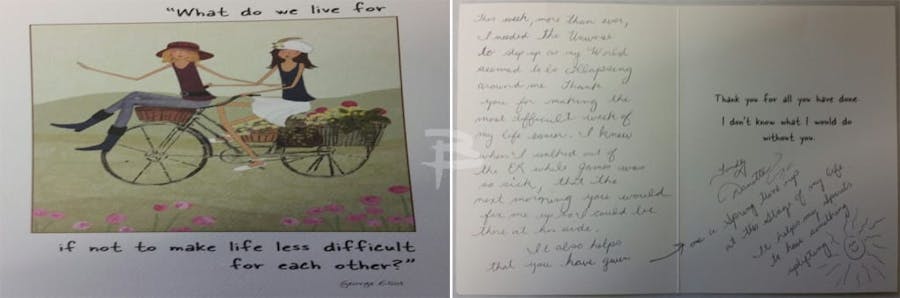 “What do we live for
if not to make life less difficult
for each other?”
George Eliot
This week, more than ever,
I needed the Universe
to step up as my World
seemed to be collapsing
around me. Thank
you for making the
most difficult week of
my life easier. I knew
when I walked out of
the ER while James was
so sick, that the
next morning you would
fix me up so I could be
there at his side.
It also helps
that you have given
me a Spring tune up
at this stage of my life
It helps my spirits
to have something
uplifting
Thank you for all you have done.
I don't know what I would do
without you.
Fondly